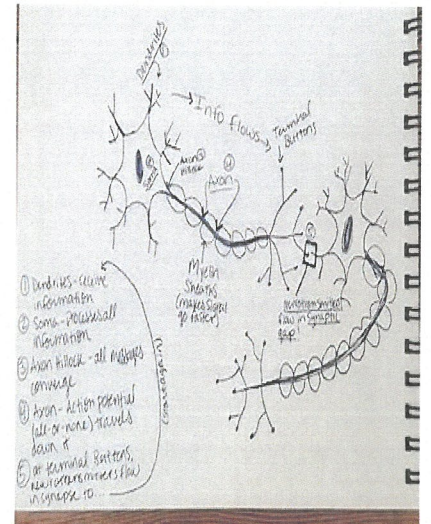 Dendrites
①
→ Info flows →
Terminal
Buttons
②
Soma
Axon ③
Hillock
④
Axon
Myelin
Sheaths
(makes signal
go faster)
⑤
neurotransmitters
flow in synaptic
gap
① Dendrites - receive
information
② Soma - Processes all
information
③ Axon Hillock - all messages
converge
④ Axon - Action potential
(all-or-none) travels
down it
⑤ at terminal Buttons,
neurotransmitters flow
in synapse to...
(start again)